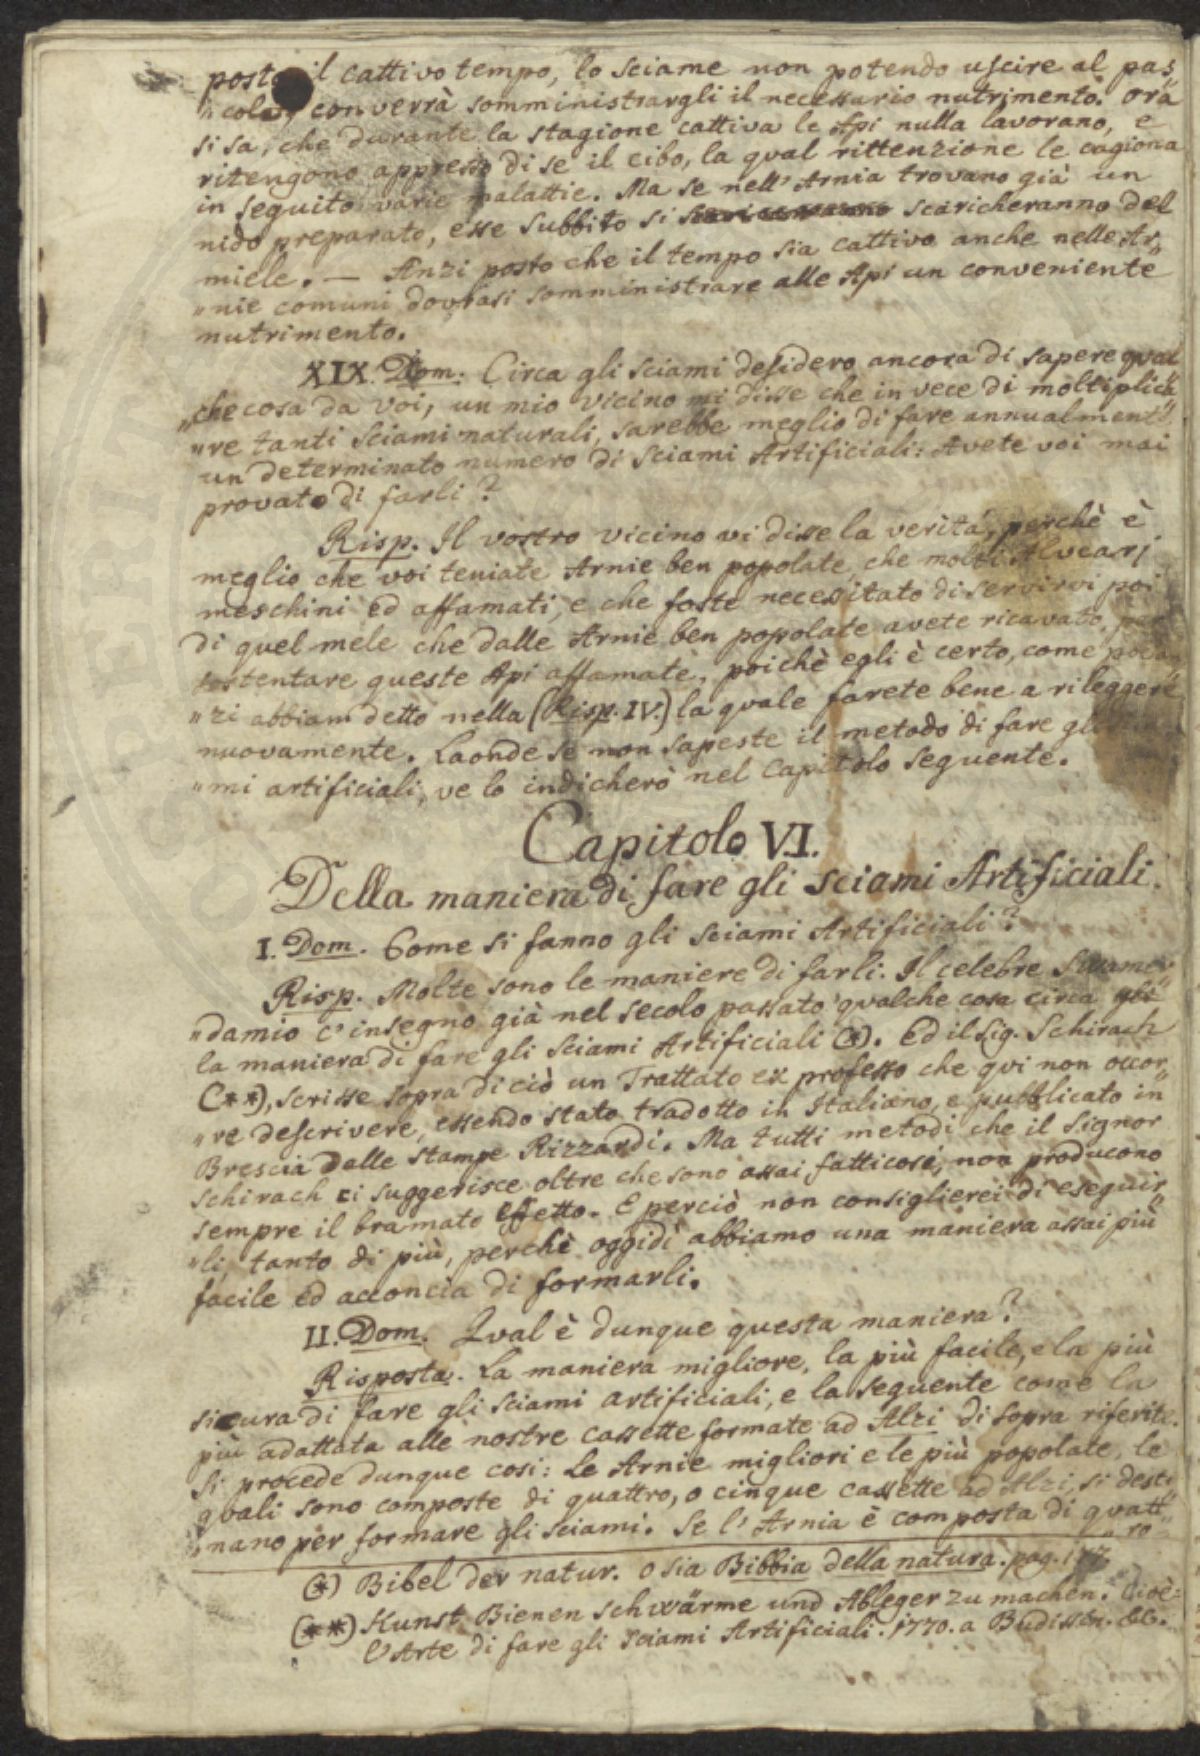 posto il cattivo tempo, lo sciame non potendo uscire al pas„
„colo, converrà somministrargli il necessario nutrimento. Ora
si sa, che durante la stagione cattiva le Api nulla lavorano, e
ritengono appresso di se il cibo, la qval rittenzione le cagiona
in seguito varie malattie. Ma se nell' Arnia trovano già un
nido preparato, esse subbito si scaricheranno del
miele. — Anzi posto che il tempo sia cattivo anche nelle Ar„
„nie comuni dovrassi somministrare alle Api un conveniente
nutrimento.
XIX. Dom: Circa gli sciami desidero ancora di sapere qval„
„che cosa da voi, un mio vicino mi disse che in vece di moltiplica„
„re tanti sciami naturali, sarebbe meglio di fare annualmente
un determinato numero di sciami Artificiali: Avete voi mai
provato di farli?
Risp. Il vostro vicino vi disse la verità, perchè è
meglio che voi teniate Arnie ben popolate, che molti Alvearj
meschini ed affamati, e che foste necessitato di servirvi poi
di quel mele che dalle Arnie ben popolate avete ricavato, per
sostentare queste Api affamate, poichè egli è certo, come pocan„
„zi abbiam detto nella (Risp. IV.) la quale farete bene a rileggere
nuovamente. Laonde se non sapeste il metodo di fare gli
„mi artificiali, ve lo indicherò nel Capitolo seguente.
Capitolo VI.
Della maniera di fare gli sciami Artificiali.
I. Dom. Come si fanno gli sciami Artificiali?
Risp. Molte sono le maniere di farli. Il celebre Swamer„
„damio c'insegnò già nel secolo passato qualche cosa circa
la maniera di fare gli sciami Artificiali (*). Ed il Sig. Schirach
(**), scrisse sopra di ciò un Trattato ex professo che qvi non occor„
„re descrivere, essendo stato tradotto in Italiano, e pubblicato in
Brescia dalle stampe Rizzardi. Ma tutti metodi che il Signor
Schirach ci suggerisce oltre che sono assai fatticosi, non producono
sempre il bramato effetto. E perciò non consiglierei di eseguir„
„li, tanto di più, perchè oggidi abbiamo una maniera assai più
facile ed acconcia di formarli.
II. Dom. Qval è dunque questa maniera?
Risposta. La maniera migliore, la più facile, e la più
sicura di fare gli sciami artificiali, e la seguente come la
più adattata alle nostre cassette formate ad Alzi di sopra riferite.
Si procede dunque cosi: Le Arnie migliori e le più popolate, le
qvali sono composte di quattro, o cinque cassette ad Alzi, si desti„
„nano per formare gli sciami. Se l' Arnia è composta di qvatt„
„ro
(*) Bibel der natur. o sia Bibbia della natura. pag. 177.
(**) Kunst Bienen schwärme und Ableger zu machen. Cioè:
l'Arte di fare gli sciami Artificiali. 1770. a Budissen. &c.